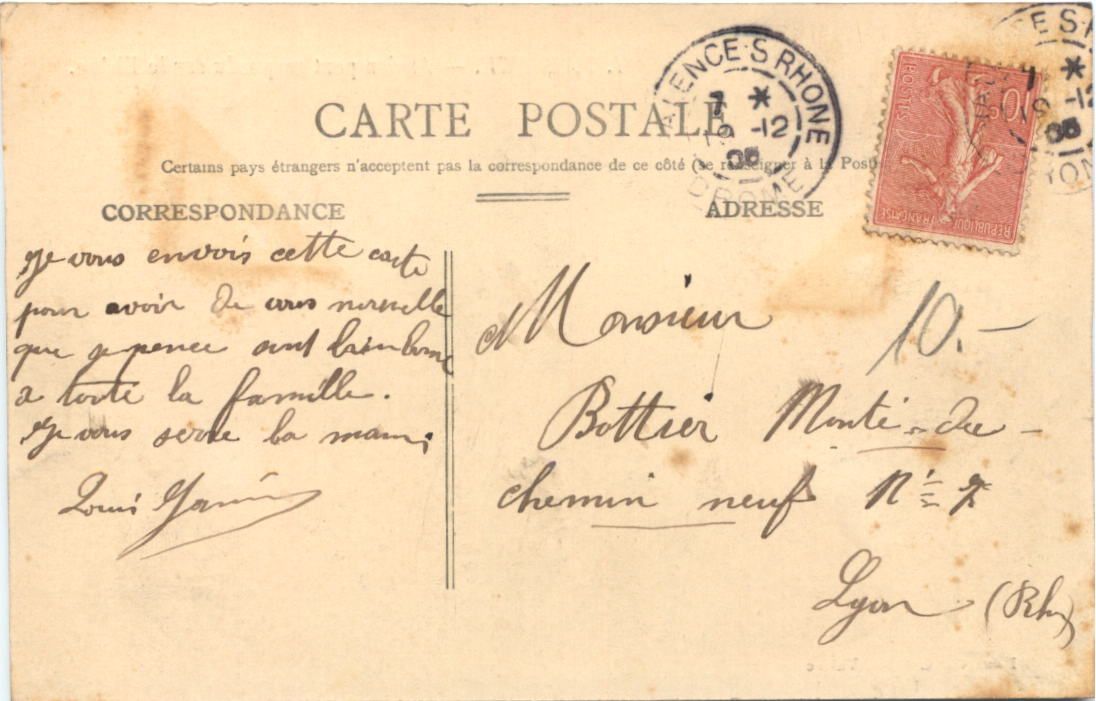 CARTE POSTALE
Certains pays étrangers n'acceptent pas la correspondance de ce côté (se renseigner à la Post
CORRESPONDANCE
Je vous envois cette carte
pour avoir de vous nouvelle
que je pence sont bien bonne
a toute la famille.
Je vous serre la main
Louis
ADRESSE
Monsieur
Bottier Monté-du-
chemin neuf N° 7
Lyon (Rh)
10.-
VALENCE S RHONE
* 
-12
DROME
10
POSTES
REPUBLIQUE FRANÇAISE
E S R
*
-12